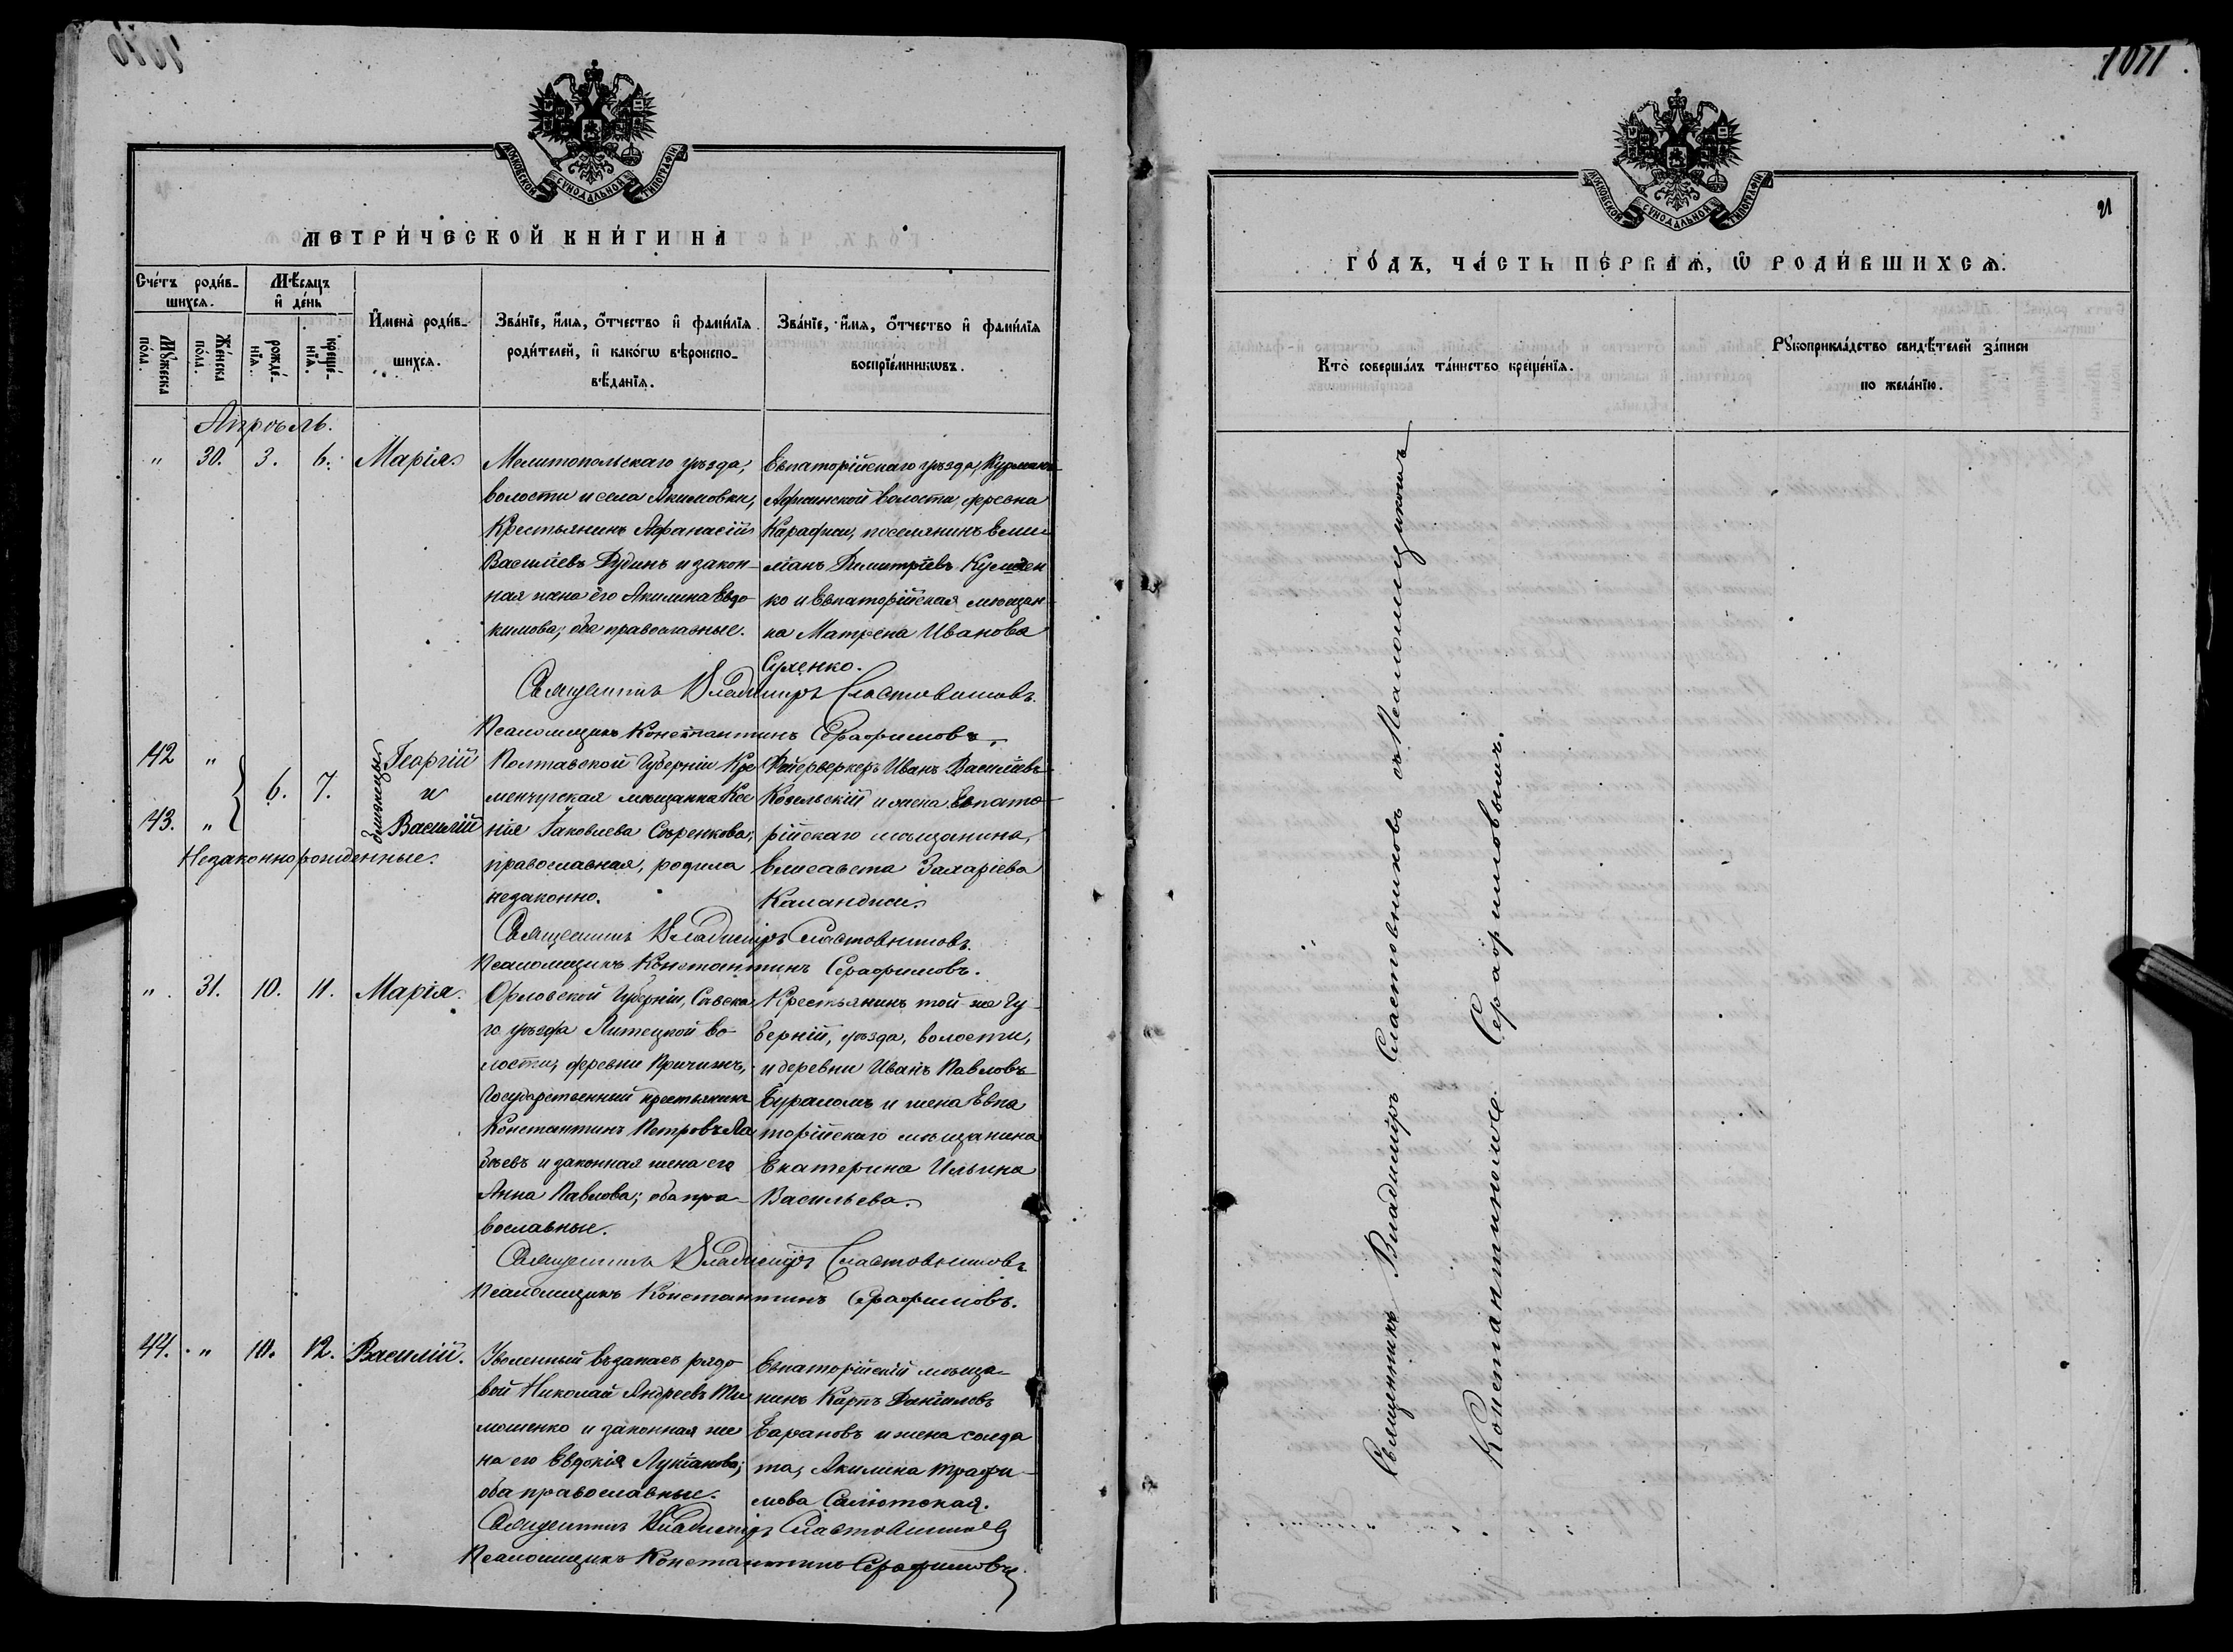 1071
МОСКОВСКОЙ СѴНОДАЛЬНОЙ ТИПОГРАФІИ
МЕТРИ́ЧЕСКОЙ КНИ́ГИ НА
Сче́тъ роди́в-
шихсѧ.
Мѣ́сѧцъ
и҆ де́нь
Мꙋ́жеска по́ла.
Же́нска по́ла.
рожде́-
нїѧ.
креще́-
нїѧ.
И҆мена̀ роди́в-
шихсѧ.
Зва́нїе, и҆́мѧ, ѻ҆́тчество и҆ фами́лїѧ
роди́телей, и҆ како́гѡ вѣроиспо-
вѣ́данїѧ.
Зва́нїе, и҆́мѧ, ѻ҆́тчество и҆ фами́лїѧ
воспрїе́мникѡвъ.
Апрѣль.
" 30. 3. 6. Марія.
Мелитопольскаго уѣзда,
волости и села Акимовки,
Крестьянинъ Афанасій
Василіевъ Дудинъ и закон-
ная жена его Акилина Евдо
кимова; оба православные.
Евпаторійскаго уѣзда,
волости деревни
поселянинъ Еми
ліанъ Димитріевъ
ко и Евпаторійская мѣщан-
ка Матрена Иванова
Сухенко.
Священникъ Владиміръ Сластовниковъ.
Псаломщикъ Константинъ Серафимовъ.
42 "
43. "
6. 7.
близнецы
Георгій
и
Василій
Незаконнорожденные.
Полтавской Губерніи Кре
менчугская мѣщанка Ксе
нія Іаковлева
православная, родила
незаконно.
Фейерверкеръ Иванъ Василіевъ
Козельскій и жена Евпато-
рійскаго мѣщанина,
Елисавета Захаріева
Священникъ Владиміръ Сластовниковъ.
Псаломщикъ Константинъ Серафимовъ.
" 31. 10. 11. Марія.
Орловской Губерніи, Сѣвска
го уѣзда Литецкой во-
лости, деревни
Государственный крестьянинъ
Константинъ Петровъ Ла
зѣевъ и законная жена его
Анна Павлова; оба пра-
вославные.
Крестьянинъ той-же Гу-
берніи, уѣзда, волости,
и деревни Иванъ Павловъ
и жена Евпа
торійскаго мѣщанина
Екатерина Ильина
Васильева.
Священникъ Владиміръ Сластовниковъ
Псаломщикъ Константинъ Серафимовъ.
44. " 10. 12. Василій.
Уволенный въ запасъ рядо
вой Николай Андреевъ Ти
мошенко и законная же
на его Евдокія Лукіанова;
оба православные.
Евпаторійскій мѣща-
нинъ Карпъ Даніиловъ
Барановъ и жена солда
та, Акилина Трофи-
мова
Священникъ Владиміръ Сластовниковъ
Псаломщикъ Константинъ Серафимовъ
МОСКОВСКОЙ СѴНОДАЛЬНОЙ ТИПОГРАФІИ
21
ГО́ДЪ, ЧА́СТЬ ПЕ́РВАѦ, Ѡ҆ РОДИ́ВШИХСѦ.
Кто̀ соверша́лъ та́инство креще́нїѧ.
Рꙋкоприкла́дство свидѣ́телей за́писи
по жела́нїю.
Священникъ Владиміръ Сластовниковъ съ Псаломщикомъ
Константиномъ Серафимовымъ.